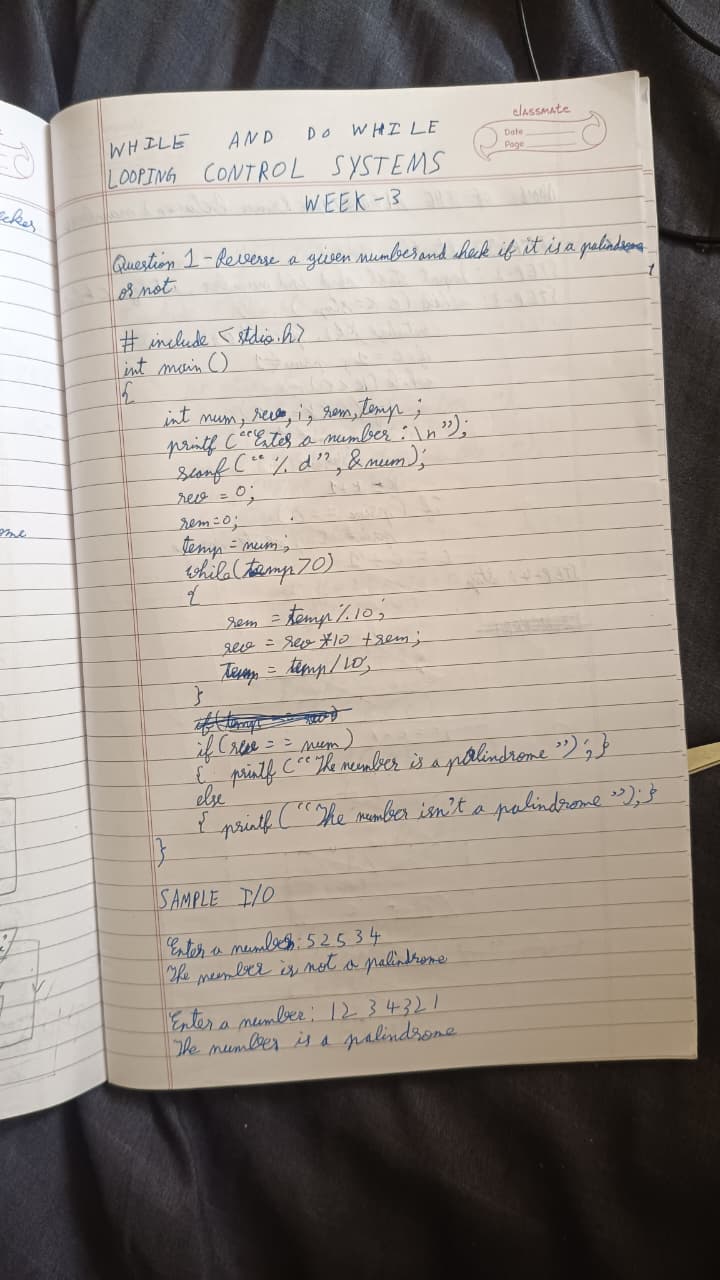 classmate
Date
Page
WHILE AND DO WHILE
LOOPING CONTROL SYSTEMS
WEEK-3
Question 1 - Reverse a given number and check if it is a palindrome
or not.
# include <stdio.h>
int main ()
{
int num, rev, i, rem, temp ;
printf (“Enter a number : \n”);
scanf (“ % d”, &num);
rev = 0;
rem=0;
temp = num;
while (temp>0)
{
rem = temp%10;
rev = rev *10 +rem;
temp = temp/10;
}
if (rev = = num)
{ printf (“The number is a palindrome ”) ; }
else
{ printf (“The number isn't a palindrome ”); }
}
SAMPLE I/O
Enter a number: 52534
The number is not a palindrome
Enter a number: 1234321
The number is a palindrome